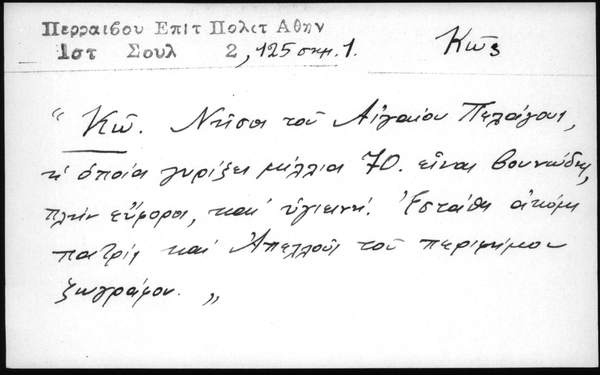 Περραιβου Επιτ Πολιτ Αθην
Ιστ Σουλ 2, 125 σημ. 1.
Κῶς
“ Κῶ. Νῆσος τοῦ Αἰγαίου Πελάγους,
ἡ ὁποία γυρίζει μίλλια 70. εἶναι βουνώδης,
πλὴν εὔφορος, καὶ ὑγιεινή. Ἐστάθη ἀκόμη
πατρὶς καὶ Ἀπελλοῦς τοῦ περιφήμου
ζωγράφου. „